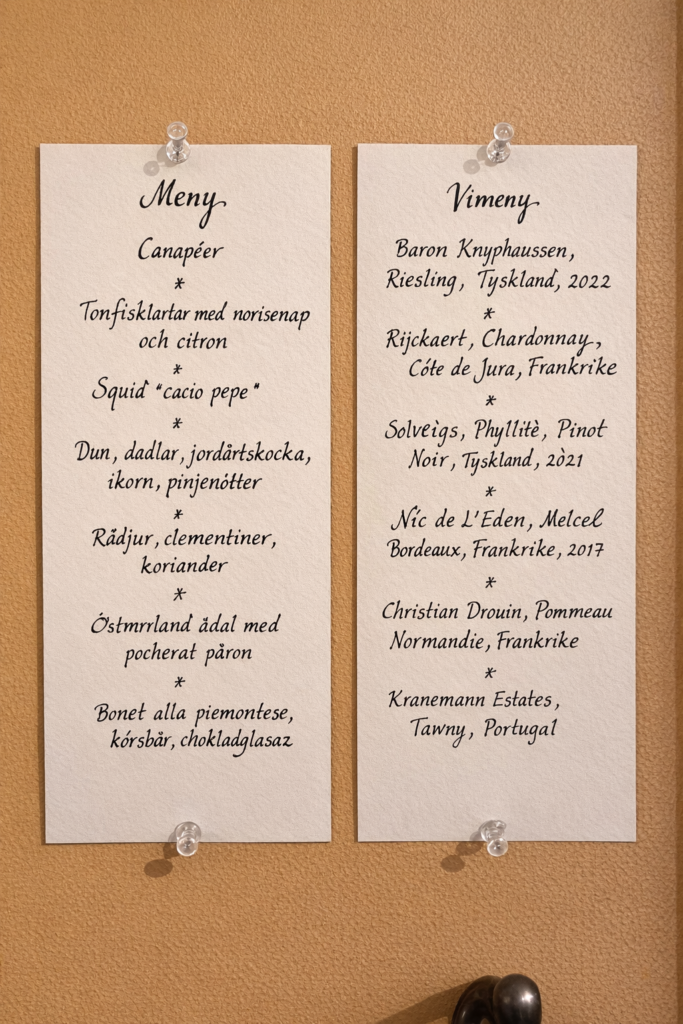 Meny
Canapéer
*
Tonfisklartar med norisenap
och citron
*
Squid "cacio pepe"
*
Dun, dadlar, jordårtskocka,
ikorn, pinjenótter
*
Rådjur, clementiner,
koriander
*
Óstmrrland ådal med
pocherat påron
*
Bonet alla piemontese,
kórsbår, chokladglasaz
Vimeny
Baron Knyphaussen,
Riesling, Tyskland, 2022
*
Rijckaert, Chardonnay,
Cóte de Jura, Frankrike
*
Solveigs, Phyllitè, Pinot
Noir, Tyskland, 2021
*
Nic de L'Eden, Melcel
Bordeaux, Frankrike, 2017
*
Christian Drouin, Pommeau
Normandie, Frankrike
*
Kranemann Estates,
Tawny, Portugal